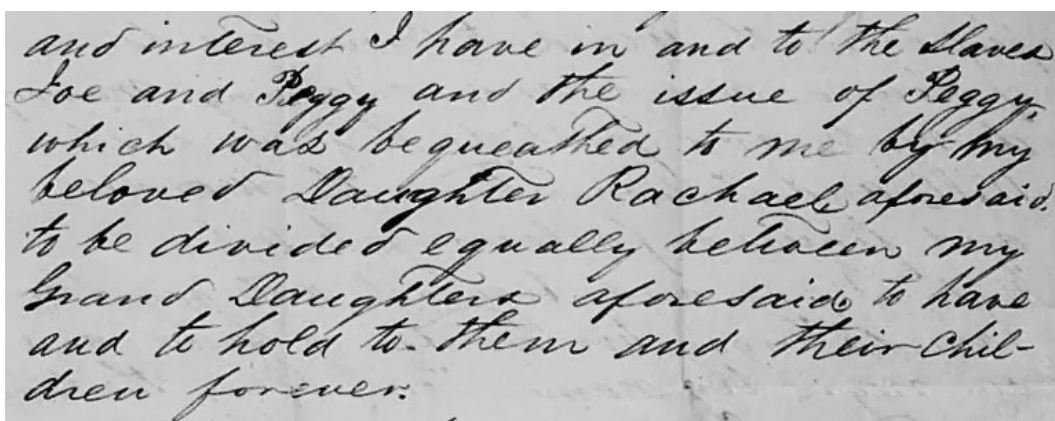 and interest I have in and to the slaves
Joe and Peggy and the issue of Peggy,
which was bequeathed to me by my
beloved Daughter Rachael aforesaid.
to be divided equally between my
Grand Daughters aforesaid, to have
and to hold to them and their chil-
dren forever.